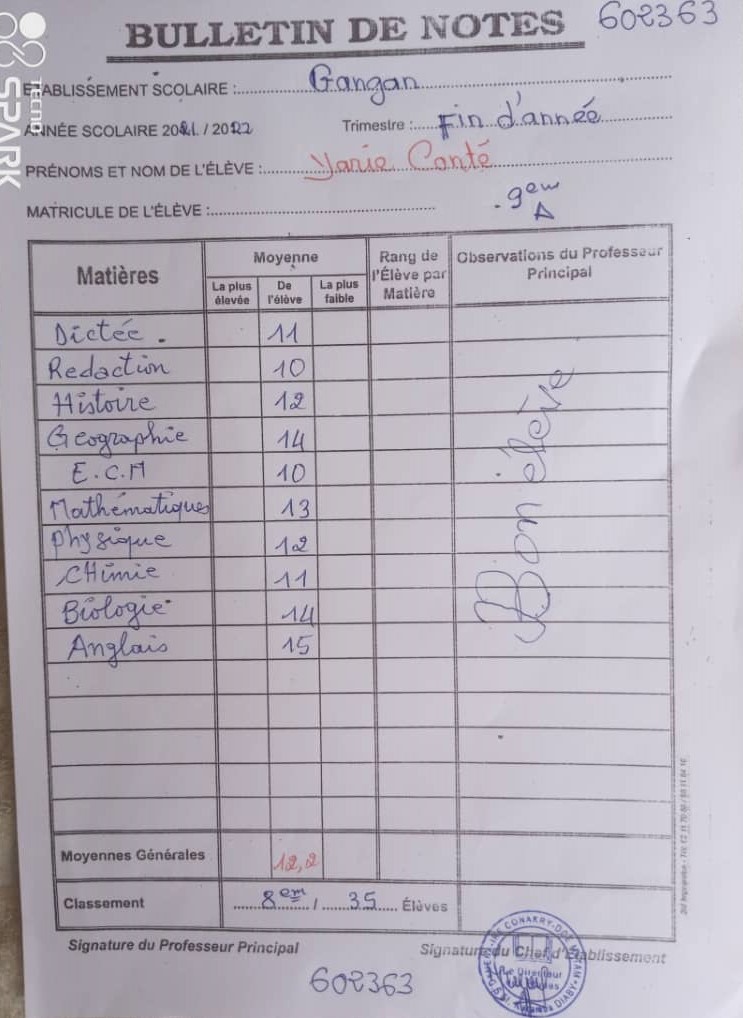 602363
BULLETIN DE NOTES
ETABLISSEMENT SCOLAIRE :.....Gangan.....
ANNÉE SCOLAIRE 2021 / 2022 Trimestre :.....Fin d'année.....
PRÉNOMS ET NOM DE L'ÉLÈVE :.....Yarie Conté.....
MATRICULE DE L'ÉLÈVE :.....
9em
A
Matières
Moyenne
La plus élevée
De l'élève
La plus faible
Rang de l'Élève par Matière
Observations du Professeur Principal
Dictée . 11
Redaction 10
Histoire 12
Geographie 14
E.C.M 10
Mathématiques 13
Physique 12
CHimie 11
Biologie 14
Anglais 15
Bon élève
Moyennes Générales 12,2
Classement .....8em...../.....35..... Élèves
Signature du Professeur Principal
Signature du Chef d'Établissement
602363
SPARK
TECNO